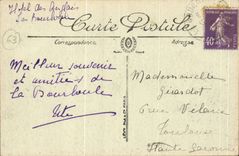 Hôtel des Anglais
La Bourboule
Carte Postale
Correspondance
Adresse
40
Meilleur souvenir
et amitiés de
La Bourboule
Mademoiselle
Girardot
6 rue
Toulouse
Haute Garonne